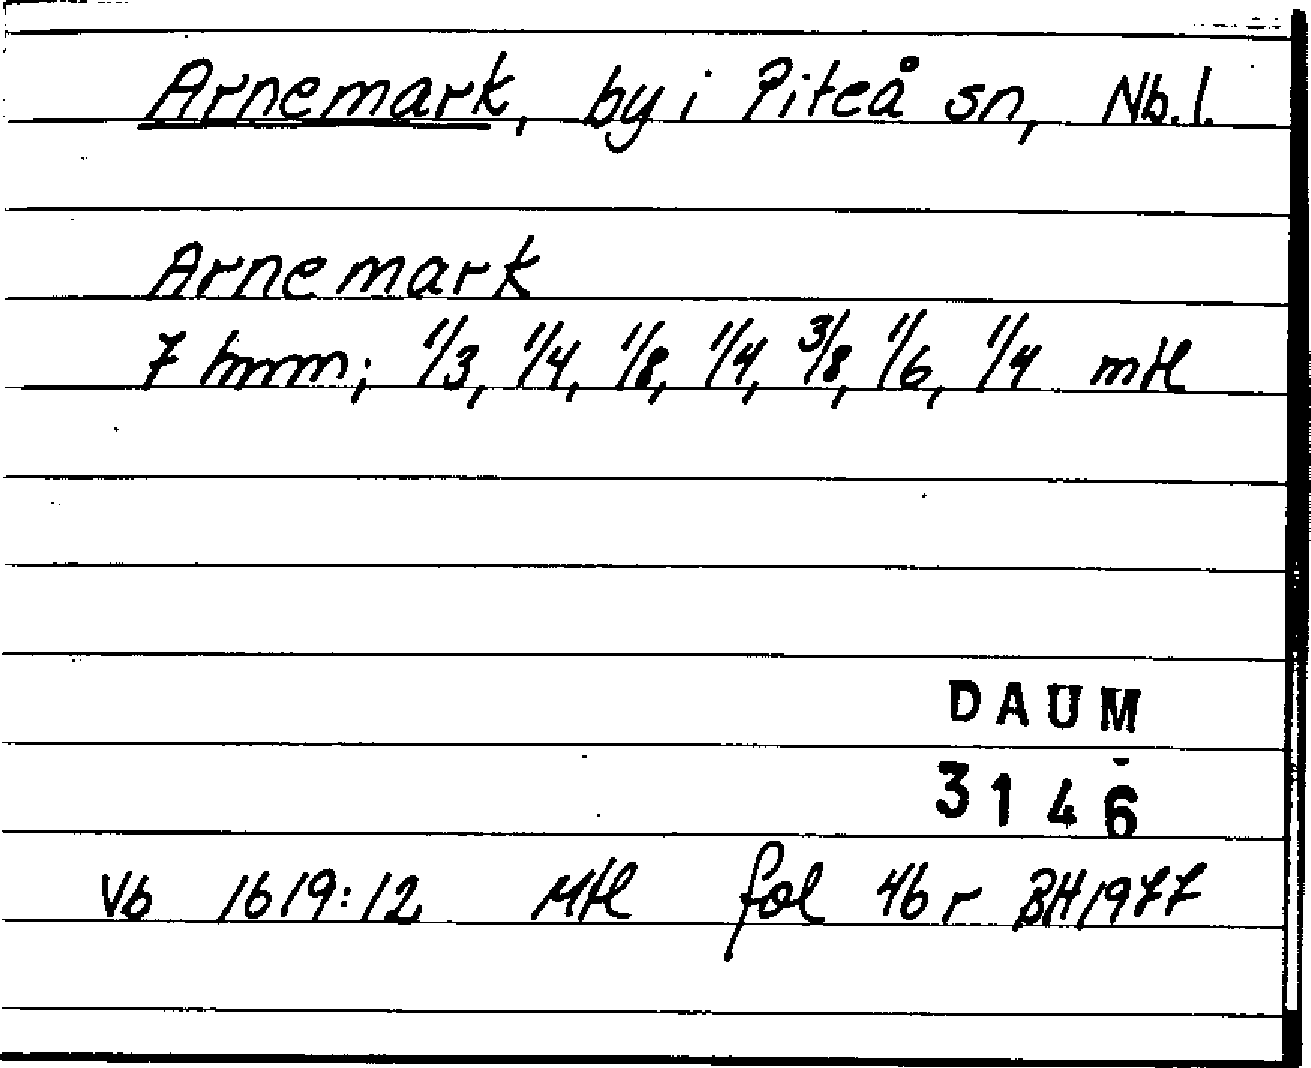 Arnemark, by i Piteå sn, Nb.l.
Arnemark
7 hmm; 1/3, 1/4, 1/8, 1/4, 3/8, 1/6, 1/4 mtl
DAUM
3146
Vb 1619:12 Mtl fol 46 r BH 1977